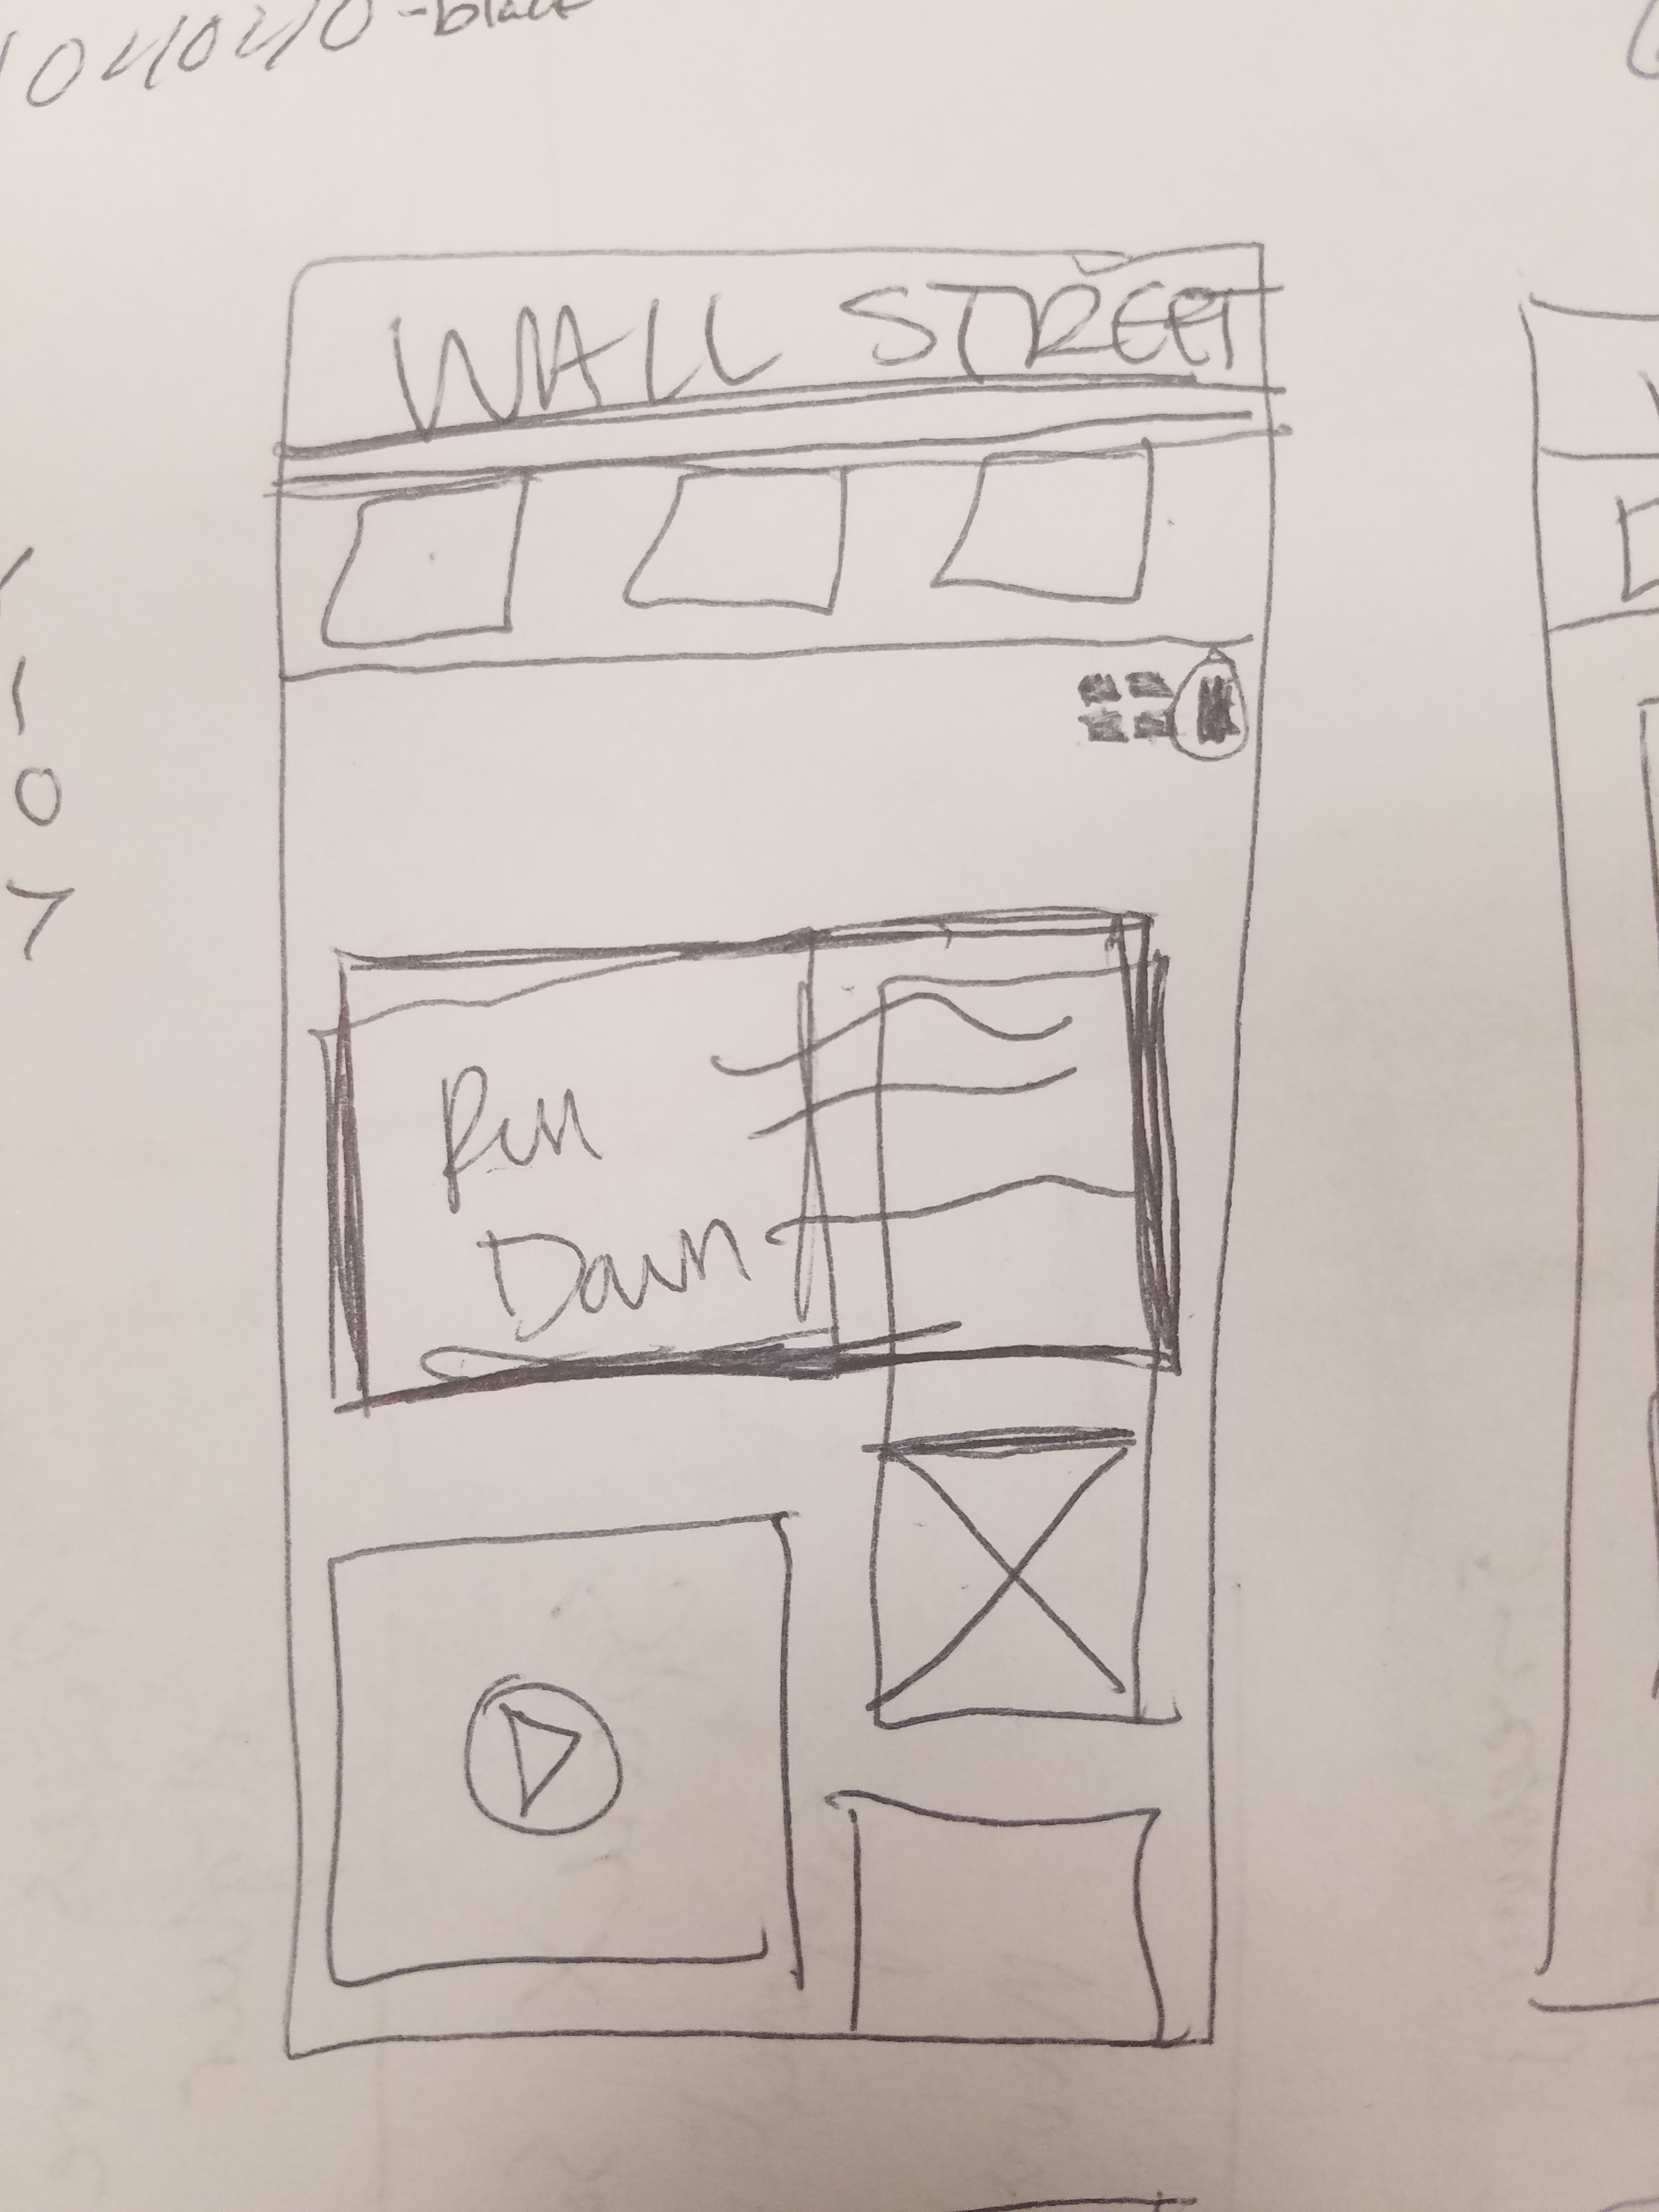 04040 -black
WALL STREET
Run
Down